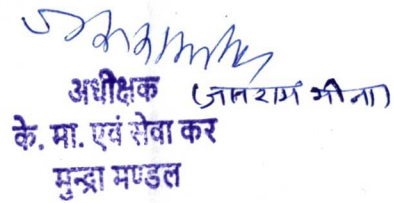 अधीक्षक (जानराम मीना)
के. मा. एवं सेवा कर
मुन्द्रा मण्डल